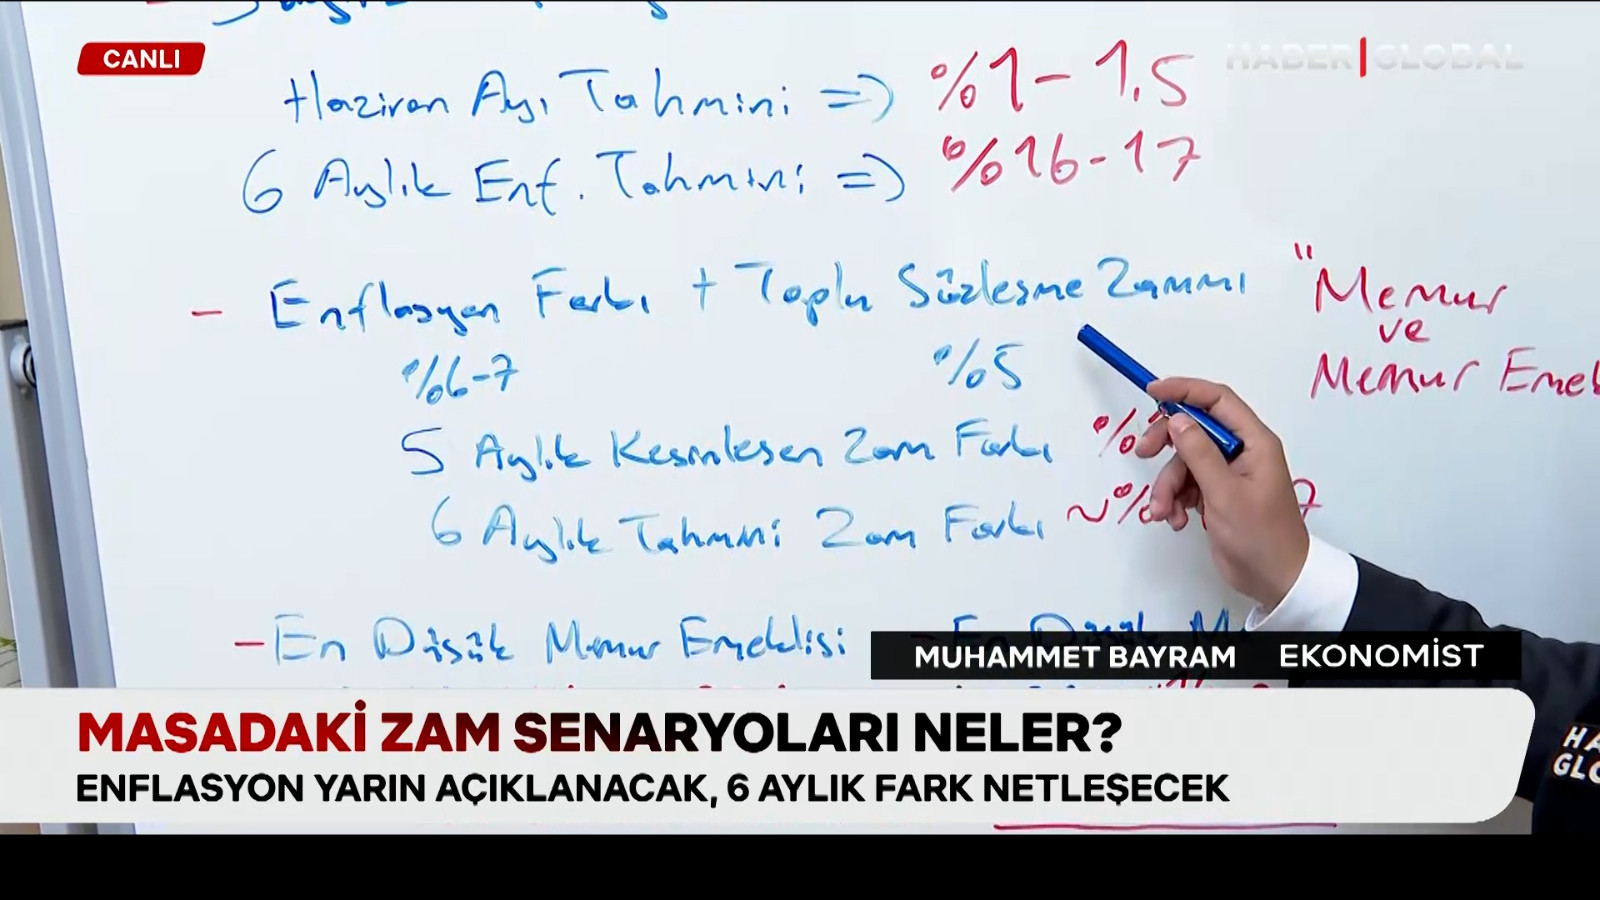 CANLI
HABER GLOBAL
Haziran Ayı Tahmini => %1-1.5
6 Aylık Enf. Tahmini => %16-17
- Enflasyon Farkı + Toplu Sözleşme Zammı "Memur
ve
%6-7 %5 Memur Emek
5 Aylık Kesinleşen Zam Farkı %
6 Aylık Tahmini Zam Farkı ~% 7
- En Düşük Memur Emeklisi - En Düşük M
MUHAMMET BAYRAM EKONOMİST
MASADAKİ ZAM SENARYOLARI NELER?
ENFLASYON YARIN AÇIKLANACAK, 6 AYLIK FARK NETLEŞECEK
HA
GLO